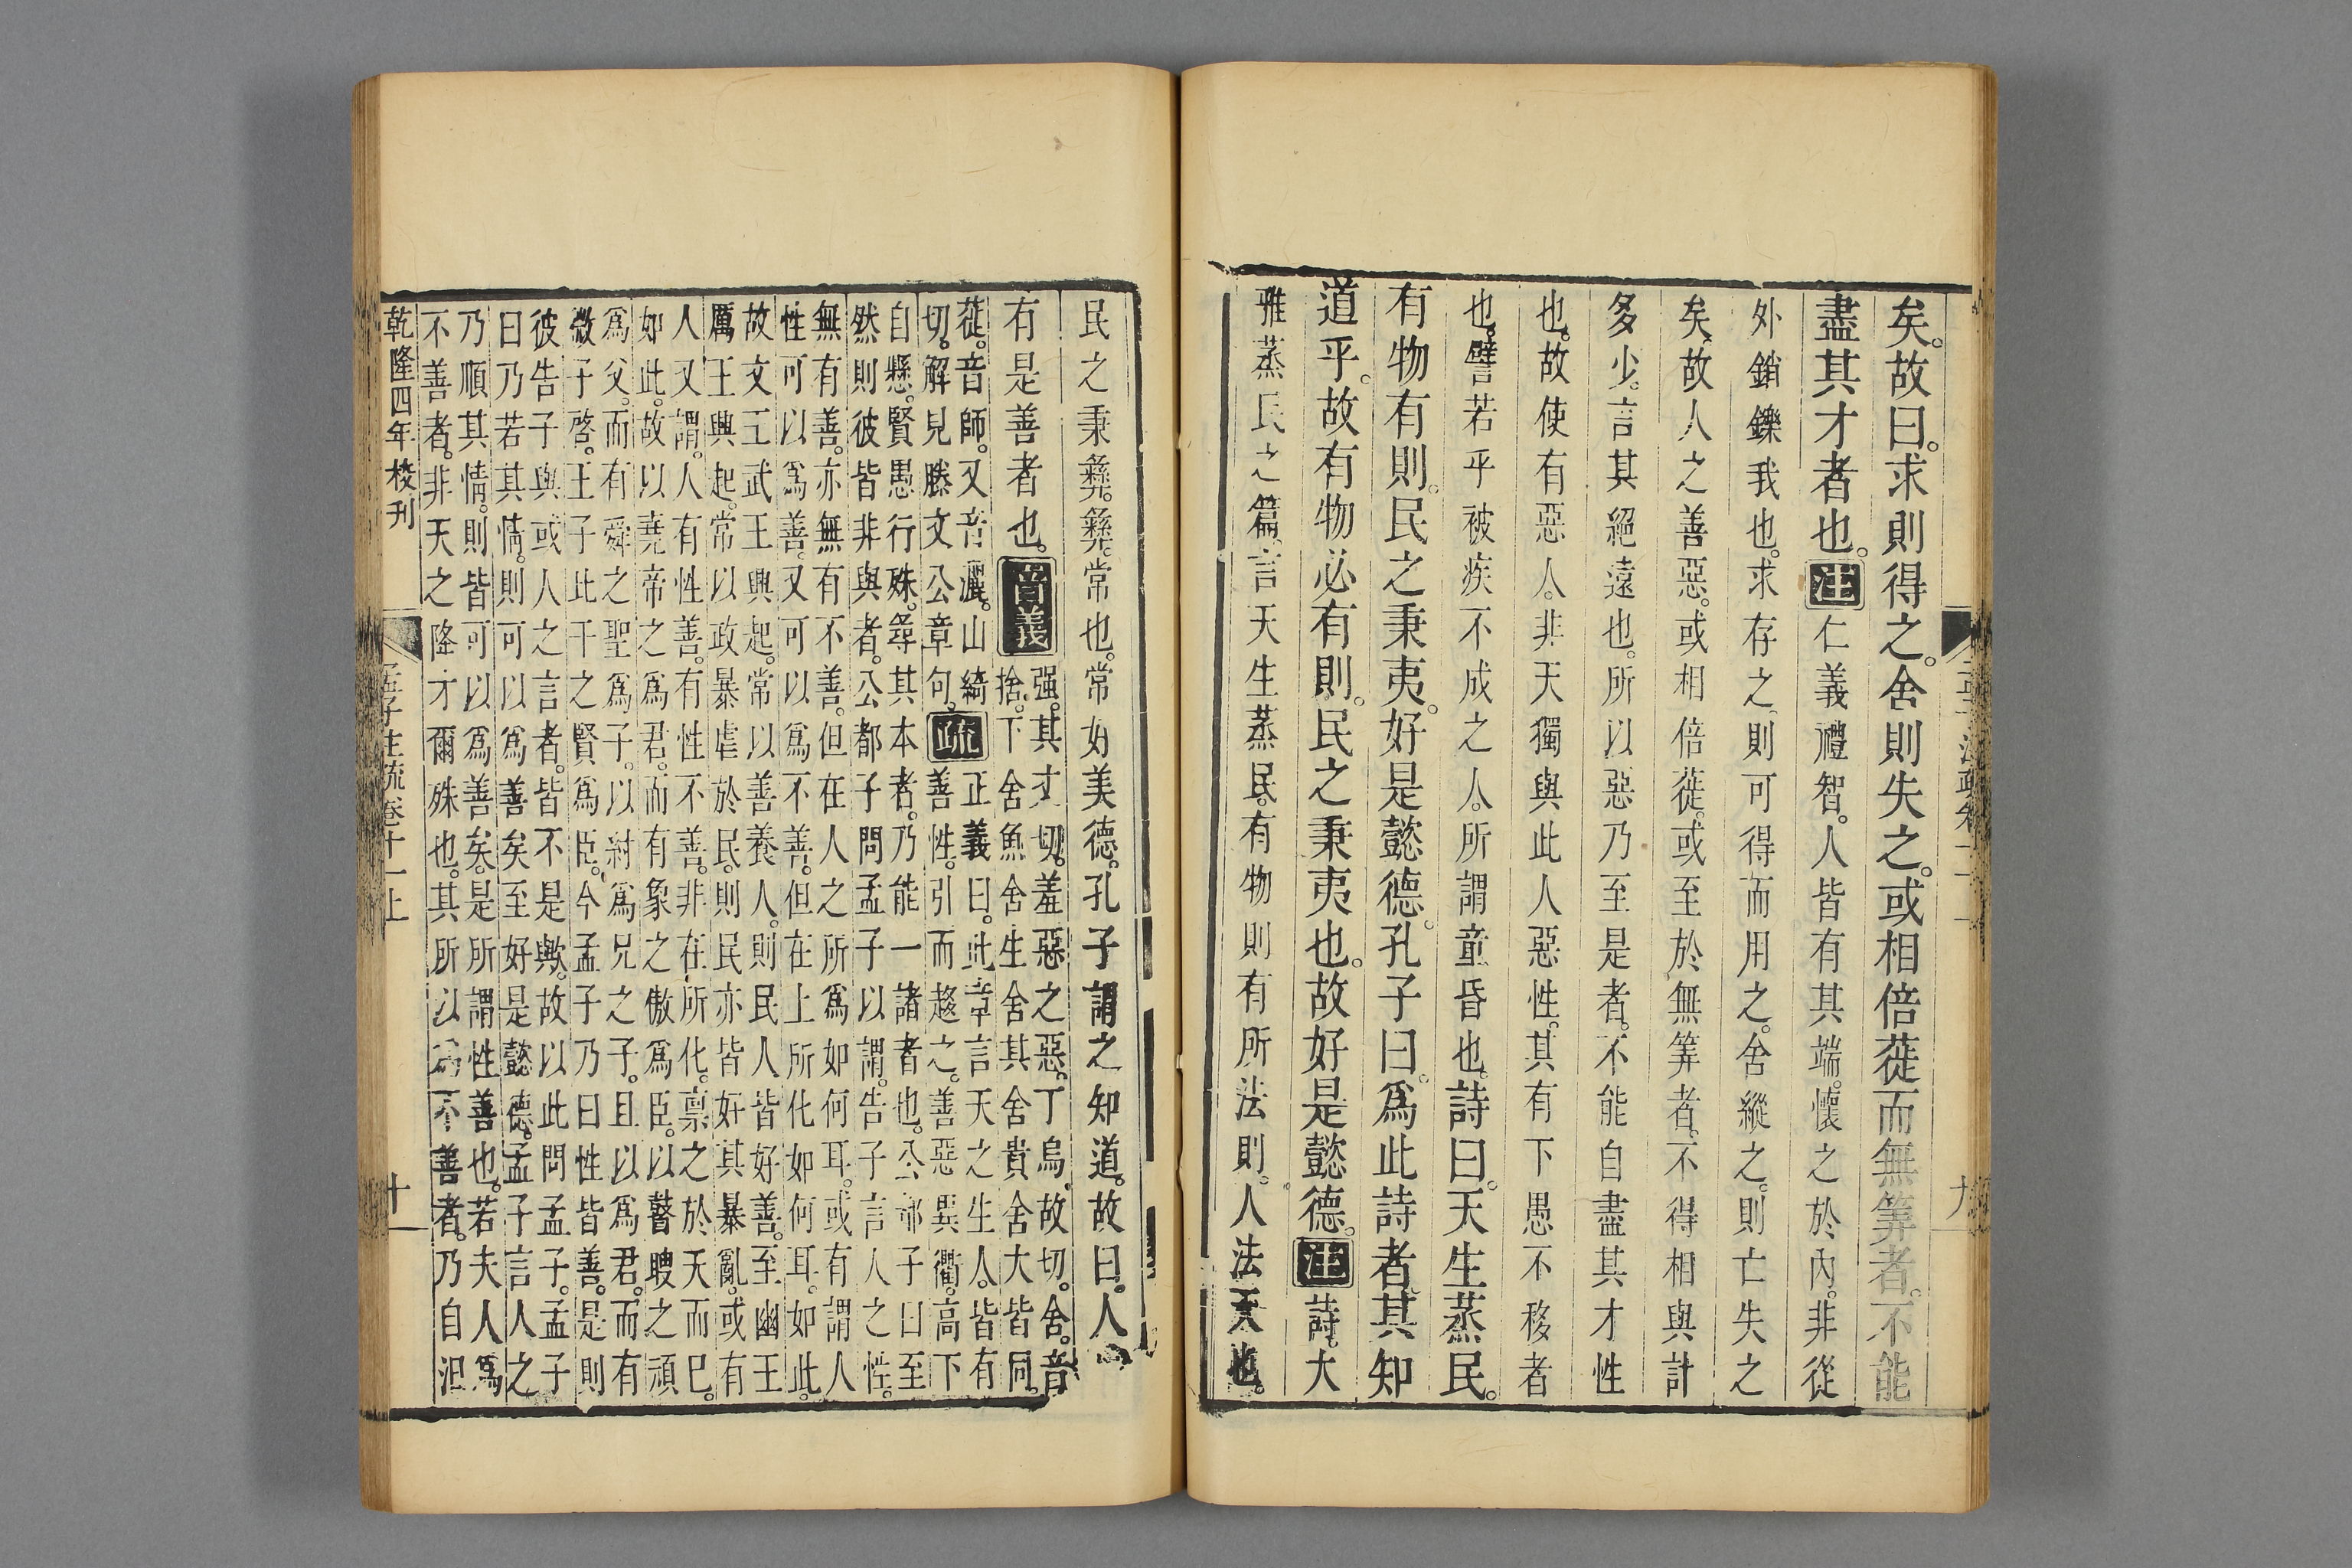 矣。故曰。求則得之。舍則失之。或相倍蓰而無筭者。不能
盡其才者也。注仁義禮智。人皆有其端。懷之於內。非從
外銷鑠我也。求存之。則可得而用之。舍縱之。則亡失之
矣。故人之善惡。或相倍蓰。或至於無筭者。不得相與計
多少。言其絕遠也。所以惡乃至是者。不能自盡其才性
也。故使有惡人。非天獨與此人惡性。其有下愚不移者
也。譬若乎被疾不成之人。所謂童昏也。詩曰。天生蒸民。
有物有則。民之秉夷。好是懿德。孔子曰。爲此詩者。其知
道乎。故有物必有則。民之秉夷也。故好是懿德。注詩。大
雅蒸民之篇。言天生蒸民。有物則有所法則。人法天也。
民之秉彝。彝。常也。常好美德。孔子謂之知道。故曰。人
有是善者也。音義
强。其丈切。羞惡之惡。丁烏故切。舍。音
捨。下舍魚舍生舍其舍貴舍大皆同。
蓰。音師。又音灑。山綺
切。解見滕文公章句。疏
正義曰。此章言天之生人。皆有
善性。引而趨之。善惡異衢。高下
自懸。賢愚行殊。尋其本者。乃能一諸者也。公都子曰至
然則彼皆非與者。公都子問孟子以謂。告子言人之性。
無有善。亦無有不善。但在人之所爲如何耳。或有謂人
性可以爲善。又可以爲不善。但在上所化如何耳。如此。
故文王武王興起。常以善養人。則民人皆好善。至幽王
厲王興起。常以政暴虐於民。則民亦皆好其暴亂。或有
人又謂。人有性善。有性不善。非在所化。禀之於天而巳。
如此。故以堯帝之爲君。而有象之傲爲臣。以瞽瞍之頑
爲父。而有舜之聖爲子。以紂爲兄之子。且以爲君。而有
微子啓。王子比干之賢爲臣。今孟子乃曰性皆善。是則
彼告子與或人之言者。皆不是歟。故以此問孟子。孟子
曰乃若其情。則可以爲善矣至好是懿德。孟子言人之
乃順其情。則皆可以爲善矣。是所謂性善也。若夫人爲
不善者。非天之降才爾殊也。其所以爲不善者。乃自汩
乾隆四年校刊
孟子注疏卷十一上
十